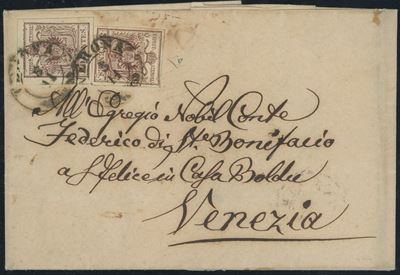 VERONA
All'Egregio Nobil Conte
Federico di Ste Bonifacio
a S. Felice in Casa Boldu
Venezia